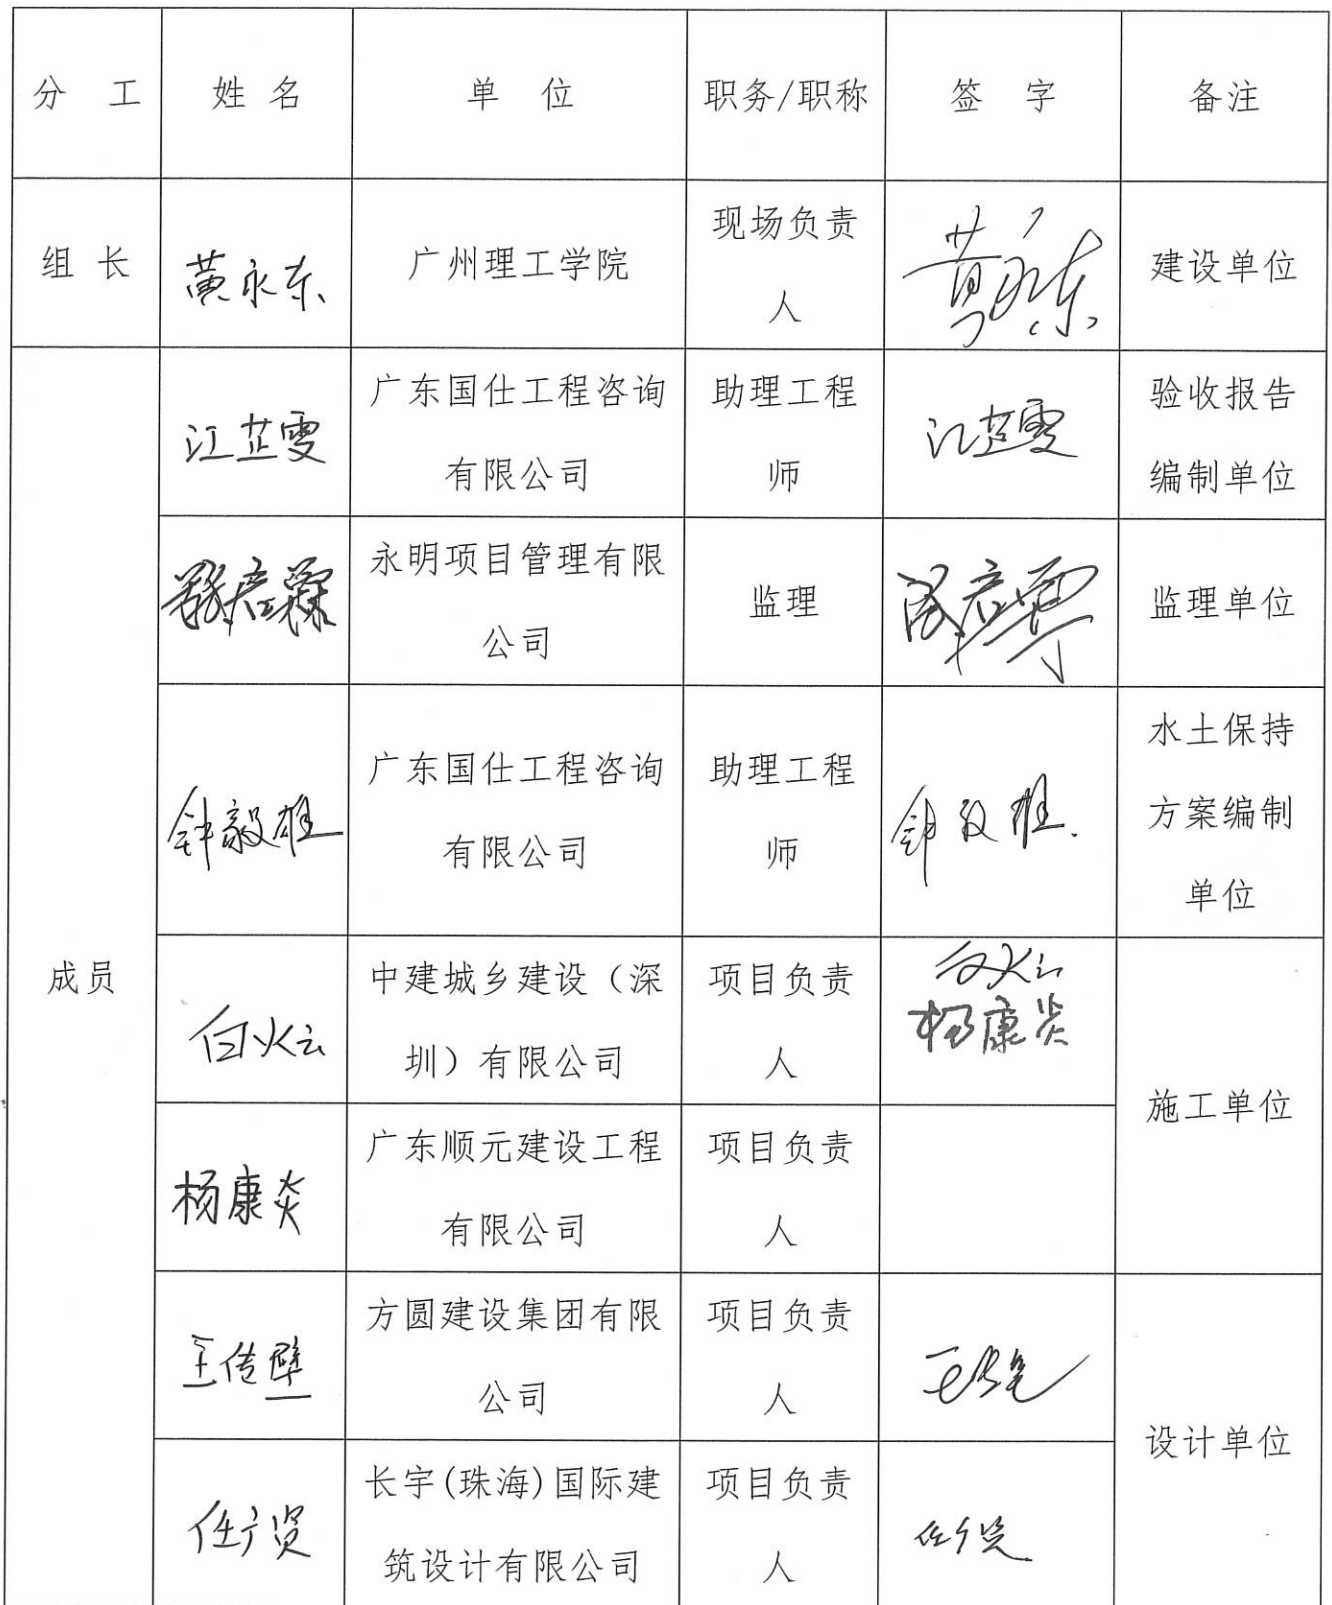 分 工 姓 名 单 位 职务/职称 签 字 备注
组 长 黄永东 广州理工学院 现场负责
人 黄永东 建设单位
成员
江芷雯 广东国仕工程咨询
有限公司 助理工程
师 江芷雯 验收报告
编制单位
永明项目管理有限
公司 监理 监理单位
钟毅雄 广东国仕工程咨询
有限公司 助理工程
师 钟毅雄 水土保持
方案编制
单位
白火云 中建城乡建设（深
圳）有限公司 项目负责
人 白火云
杨康炎
施工单位
杨康炎 广东顺元建设工程
有限公司 项目负责
人
王传壁 方圆建设集团有限
公司 项目负责
人
设计单位
任广贤 长宇(珠海)国际建
筑设计有限公司 项目负责
人